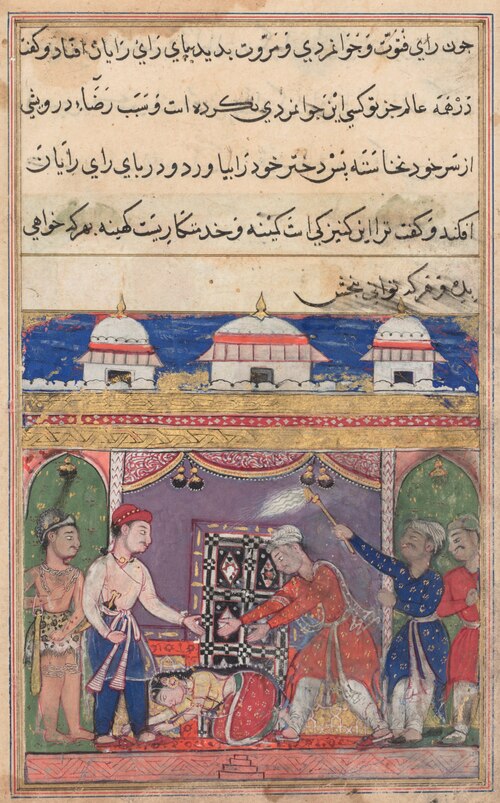 چون رای فتوّت و جوانمردی و مروّت بدید بپای رای رایان افتاد و کفت
در همه عالم جز تو کسی این جوانمردی نکرده است و سبب رضاء درویشی
از سر خود نخاسته پس دختر خود را بیاورد و در پای رای رایان
افکند و کفت ترا این کنیزکی است کمینه و خدمتکاریست کهینه بهر که خواهی
بده و بهر که توانی بخش